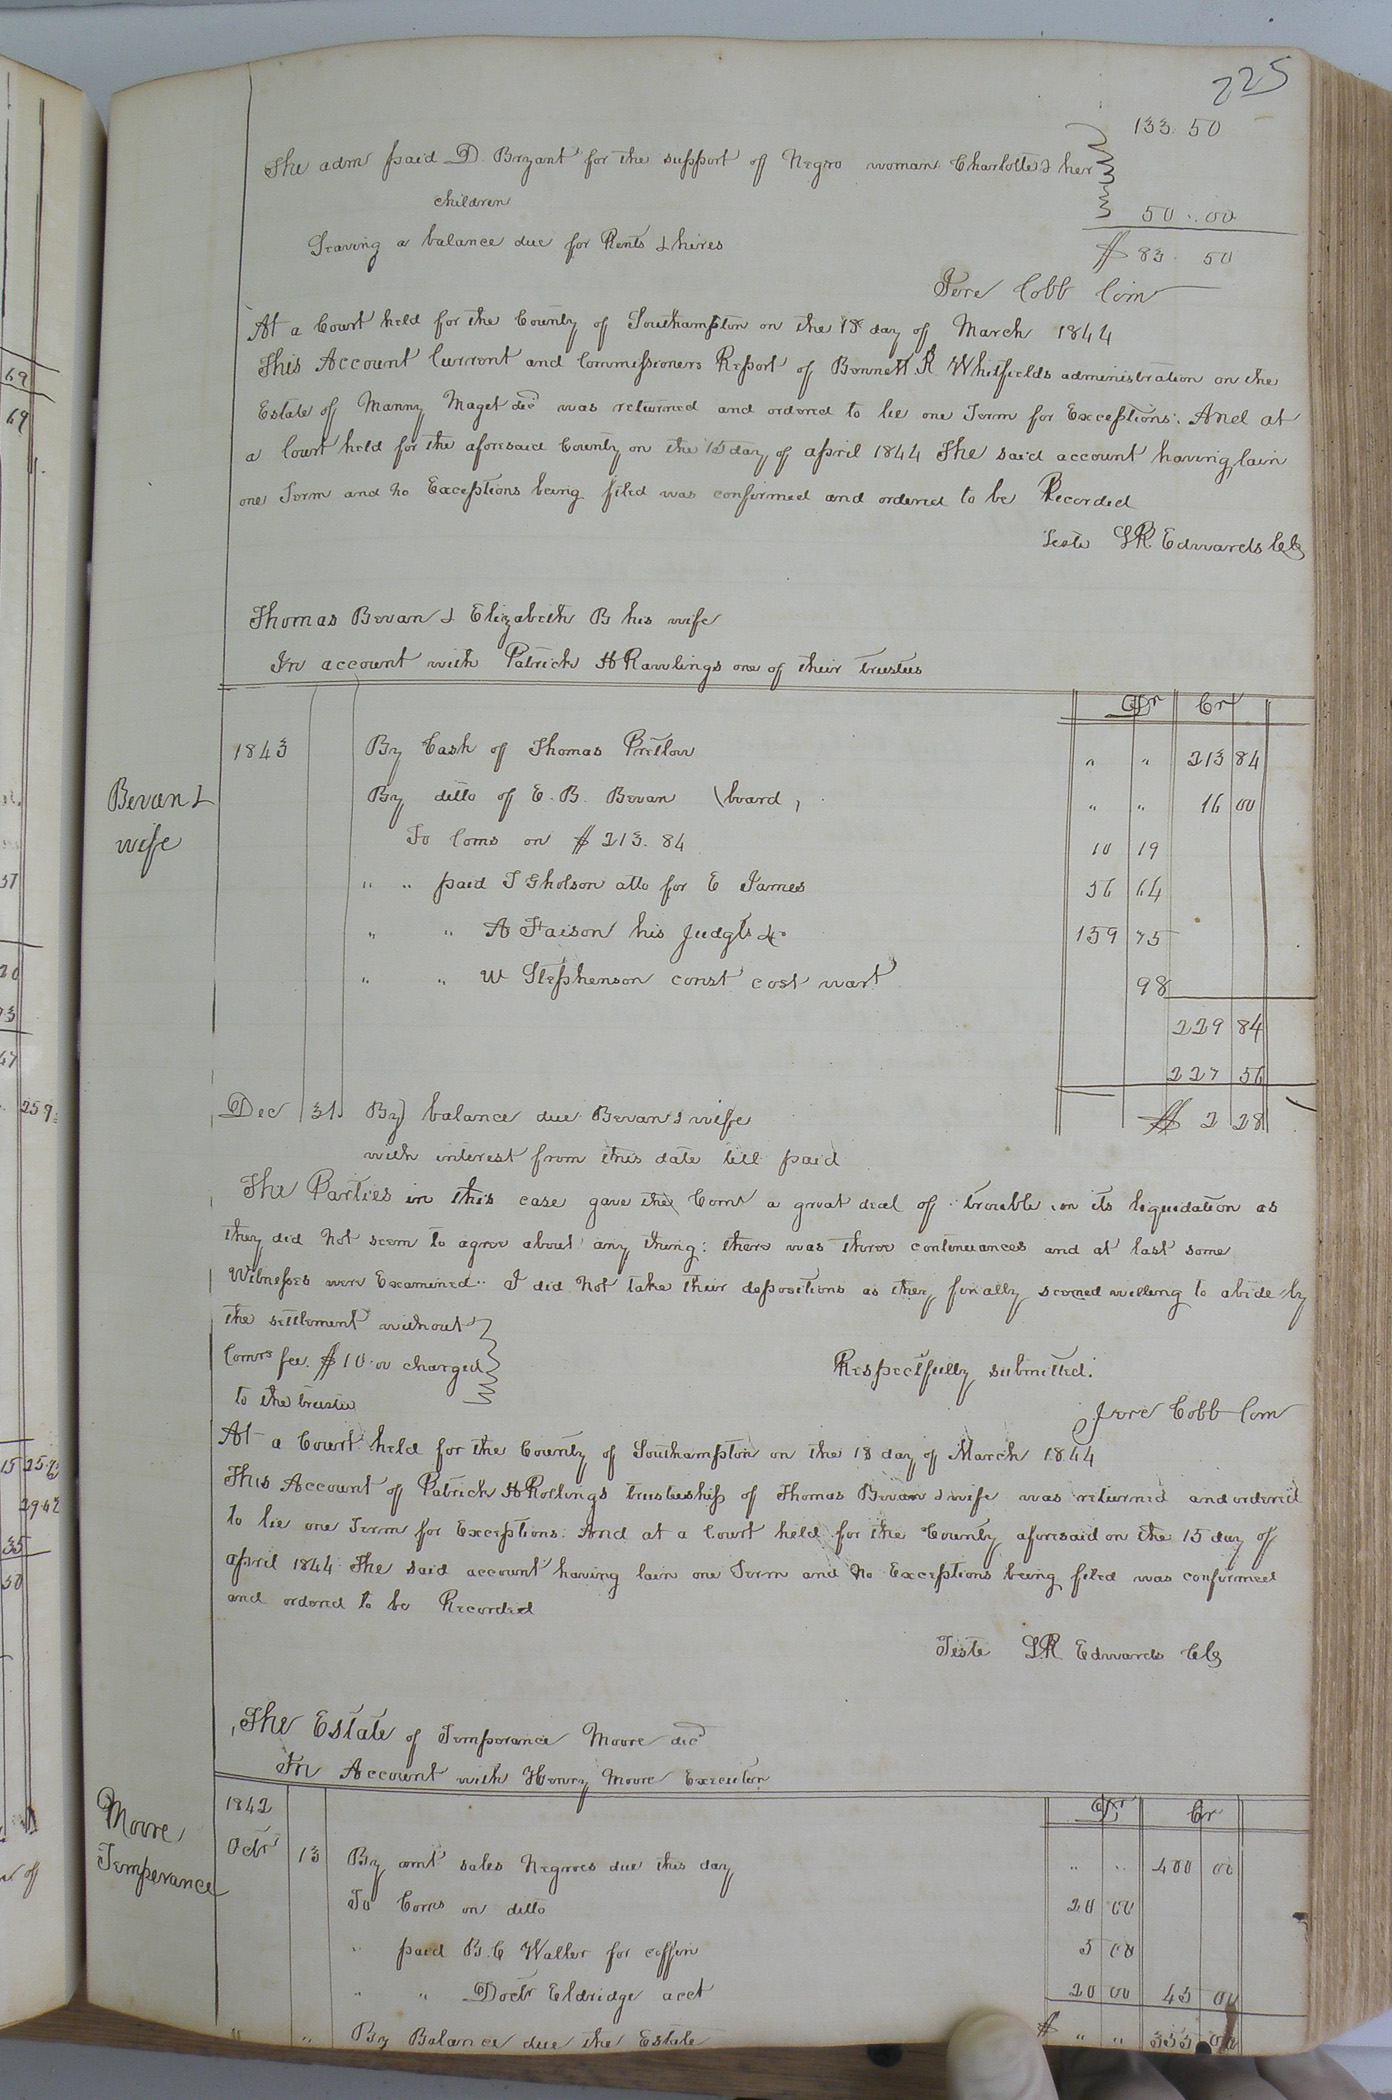 225
133.50
The adm paid D. Bryant for the support of Negro woman Charlotte & her
children
50..00
Leaving a balance due for Rents & hires
$ 83. 50
Jere Cobb Com
At a Court held for the County of Southampton on the 18 day of March 1844
This Account Current and Commissioners Report of Bennett R Whitfields administration on the
Estate of Manny Maget decd was returned and ordered to lie one Term for Exceptions. And at
a Court held for the aforesaid County on the 15 day of april 1844 The said account having lain
one Term and no Exceptions being filed was confirmed and ordered to be Recorded
Teste LR Edwards Clk
Thomas Bevan & Elizabeth B his wife
In account with Patrick H Rawlings one of their trustees
Dr Cr
1843 By Cash of Thomas Pretlow " " 213 84
Bevan &
wife
By ditto of E. B. Bevan (board, " " 16 00
To Coms on $ 213. 84 10 19
" " paid T Gholson atto for E James 56 64
" " A Faison his Judgts &c 159 75
" " W Stephenson const cost wart 98
229 84
227 56
Dec 31 By balance due Bevan & wife $ 2 28
with interest from this date till paid
The Parties in this case gave the Comr a great deal of trouble in its liquidation as
they did not seem to agree about any thing: there was three continuances and at last some
Witnesses were Examined.. I did not take their depositions as they finally seemed willing to abide by
the settlement without
Comrs fee. $10.00 charged
to the trustee
Respectfully submitted.
Jere Cobb Com
At a Court held for the County of Southampton on the 18 day of March 1844
This Account of Patrick H Rollings trusteeship of Thomas Bevan & wife was returned and ordered
to lie one Term for Exceptions. And at a Court held for the County aforesaid on the 15 day of
april 1844 The said account having lain one Term and no Exceptions being filed was confirmed
and ordered to be Recorded
Teste LR Edwards Clk
The Estate of Temperance Moore decd
In Account with Henry Moore Executor
Moore
Temperance
1842 Dr Cr
Octr 13 By amt sales Negroes due this day " " 400 00
To Coms on ditto 20 00
" paid B. C Waller for coffin 5 00
" " Doctr Eldridge acct 20 00 45 00
" " By Balance due the Estate $ " " 355 00